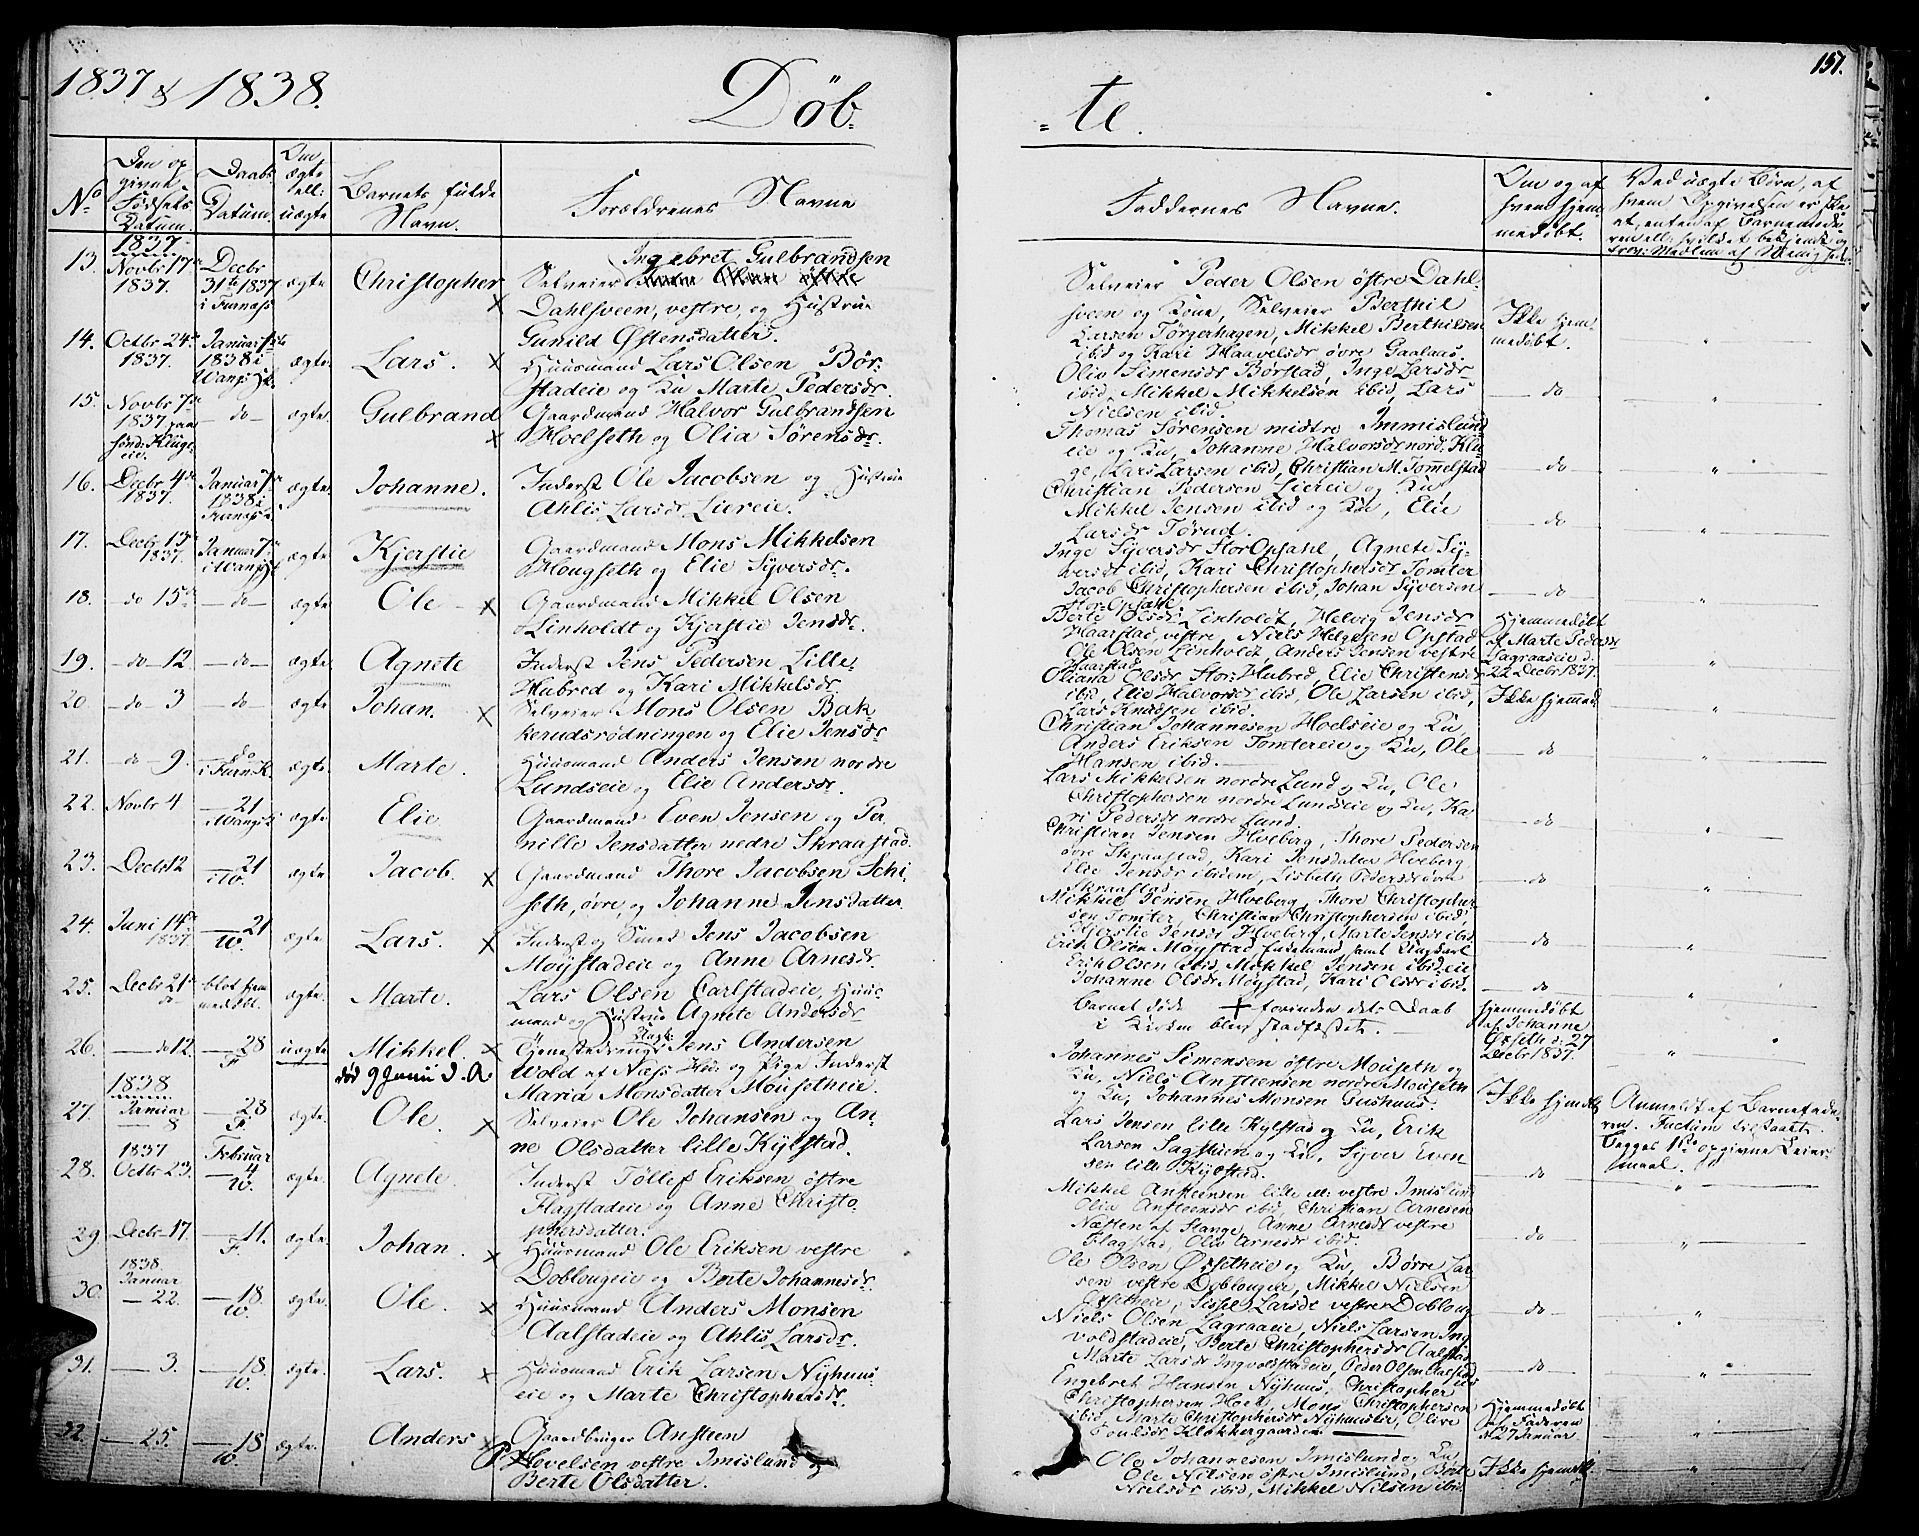 1837 & 1838.
Döb-
-te.
151.
No
Den op
givne
Fødsels
Datum.
Daabs
Datum.
Om
ægte
ell:
uægte
Barnets fulde
Navn.
Forældrenes Navne
Faddernes Navne.
Om og af
hvem hjem
medøbt.
Ved uægte Børn, af
hvem Opgivelsen er skee
13.
1837.
Novbr 17de
1837.
Decbr
31te 1837
i Furnæss
ægte
Christopher
Ingebret Gulbrandsen
Selveier
Dahlsveen, vestre, og Hustrue
Gunild Østensdatter.
Selveier Peder Olsen østre Dahl-
sveen og Kone, Selveier Berthil
Larsen Torgerhagen, Mikkel Berthilsen
ibid og Kari Haavelsdr øvre Gaalaas.
Ikke hjem
medøbt.
14.
Octbr 24de
1837.
Januar 1ste
1838 i
Wangs Hk.
ægte.
Lars.
Huusmand Lars Olsen Bør-
stadeie og Ku Marte Pedersdr.
Oliv Simensdr Børstad, Inge Larsdr
ibid, Mikkel Mikkelsen ibid, Lars
Nielsen ibid.
do
15.
Novbr 7de
1837 paa
sønd: Kluge
eie.
do
ægte.
Gulbrand
Gaardmand Halvor Gulbrandsen
Hoelseth og Olia Sørensdr.
Thomas Sørensen midtre Immislund
eie og Ku, Johanne Halvorsdr nord: Klu
ge, Lars Larsen ibid, Christian M. Tommelstad
do
16.
Decbr 4de
1837.
Januar 7de
1838 i
Furnæss
ægte.
Johanne.
Inderst Ole Jacobsen og Hustrue
Ahlis Larsdr Liereie.
Christian Pedersen Liereie og Ku
Mikkel Jensen ibid og Ku, Elie
Larsdr Torud.
do
17.
Decbr 13de
1837.
Januar 7de
i Wangs Hk
ægte
Kjerstie
Gaardmand Mons Mikkelsen
Hougseth og Elie Syversdr.
Inge Syversdr Stor Opsahl, Agnete Sy-
versdr ibid, Kari Christophersdr Tomter
Jacob Christophersen ibid, Johan Syversen
Stor-Opsahl.
do
18.
do 15de
do
ægte
Ole
Gaardmand Mikkel Olsen
Linholdt og Kjerstie Jensdr.
Berte Olsdr Linholdt, Helvig Jensdr
Haarstad, vestre, Niels Helgesen Opstad
Ole Olsen Linholdt, Anders Jensen vestre
Haarstad
Hjemmedøbt
af Marte Pedersdr
Sagraaeie d:
22 Decbr 1837.
19.
do 12
do
ægte
Agnete
Inderst Jens Pedersen Lille
Hubred og Kari Mikkelsdr.
Oliana Olsdr Stor-Hubred, Elie Christensdr
ibid, Elie Halvorsdr ibid, Ole Larsen ibid,
Lars Knudsen ibid.
Ikke hjemmed
20
do 3
do
ægte
Johan.
Selveier Mons Olsen Bak-
kerudsrødningen og Elie Jensdr
Christian Johannesen Hoelseie og Ku,
Anders Eriksen Tomtereie og Ku, Ole
Hansen ibid.
do
21.
do 9.
do
i Furn K.
ægte
Marte.
Huusmand Anders Jensen nordre
Lundseie og Elie Andersdr.
Lars Mikkelsen nordre Lund og Ku, Ole
Christophersen nordre Lundseie og Ku, Ka
ri Pedersdr nordre Lund.
do
22.
Novbr 4
21
i Wangs K
ægte
Elie
Gaardmand Even Jensen og Per
nille Jensdatter nedre Skraastad.
Christian Jensen Hveberg, Thore Pedersen
øvre Skraastad, Kari Jensdatter Hveberg
Elie Jensdr ibidem, Lisbeth Pedersdr øvre
Skraastad
do
23.
Decbr 12
21
i W.
ægte
Jacob.
Gaardmand Thore Jacobsen Schi-
seth, øvre, og Johanne Jensdatter.
Mikkel Jensen Hveberg, Thore Christopher
sen Tomter, Christian Christophersen ibid
Kjerstie Jensdr Hveberg, Marte Jensdr ibid
do
24.
Juni 14de
1837.
21
W.
ægte
Lars.
Inderst og Smed Jens Jacobsen
Møystadeie og Anne Arnesdr.
Erik Olsen Møystad, Enkemand, samt Ungkarl
Erik Olsen ibid, Mikkel Jensen ibid: eie
Johanne Olsdr Møystad, Kari Olsdr ibid.
do
25.
Decbr 21de
do
blot hjem
medøbt.
ægte
Marte.
Lars Olsen Carlstadeie, Huus-
mand og Hustrue Agnete Andersdr
Barnet døde + forinden dets Daab
i Kirken blev stadfæstet.
Hjemmedøbt
af Johanne
Ørseth d: 27
Decbr 1837.
26.
do 12.
28
F.
uægte
Mikkel.
død 9 Juni d. A
Tjenestedreng Jens Andersen
Wold af Næss Hu: og Pige Inderst
Maria Monsdatter Mousetheie.
Johannes Simensen østre Mouseth og
Ku, Niels Ansteensen nordre Mouseth
og Ku, Johannes Monsen Gushuus.
Ikke hjemdøbt
Anmeldt af Barnefade-
ren. Factum tilstaaet.
Begges 1ste opgivne Leier-
maal.
27.
1838
Januar
8
28
F.
ægte.
Ole.
Selveier Ole Johansen og An-
ne Olsdatter lille Kylstad.
Lars Jensen lille Kylstad og Ku, Erik
Larsen Sagstuen og Ku, Syver Even-
sen lille Kylstad.
do
28.
1837
Octbr 23.
Februar
4
W.
ægte.
Agnete.
Inderst Tøllef Eriksen østre
Flagstadeie og Anne Christo
phersdatter.
Mikkel Ansteensen lille ell: vestre Imislund
Olia Ansteensdr ibid, Christian Arnesen
Næsten af Stange, Anne Arnesdr vestre
Flagstad, Oliv Arnesdr ibid.
do
29
Decbr 17.
11.
F.
ægte.
Johan.
Huusmand Ole Eriksen vestre
Doblougeie og Berte Johannesdr.
Ole Olsen Ørsetheie og Ku, Børre Lar-
sen vestre Doblougeie, Mikkel Nielsen
Ørsetheie, Sissel Larsdr vestre Doblong
do
30.
1838.
Januar
22.
18.
W.
ægte
Ole.
Huusmand Anders Monsen
Aalstadeie og Ahlis Larsdr.
Niels Olsen Lagraaeie, Niels Larsen Ing
voldstadeie, Berte Christophersdr Aalstad
Marte Larsdr Ingvoldstadeie, Peder Olsen Aalstad
do
31.
3.
18
W.
ægte.
Lars.
Huusmand Erik Larsen Nyhuus-
eie og Marte Christophersdr.
Engebret Hansen Nyhuus, Christopher
Christophersen Hoel, Mons Christophersen
ibid, Marte Christophersdr Nyhuuseie, Olive
Poulsdr Klokkergaarden.
Hjemmedøbt
af Faderen
d 27 Januar
32.
25.
18
W.
ægte.
Anders
Gaardbruger Ansteen
Hovelsen vestre Imislund og
Berte Olsdatter.
Ole Johannesen Imislund og Ku
Ole Nilsen østre Imislund, Berte
Nielsdr ibid, Mikkel Nilsen ibid.
Ikke hjemdbt.